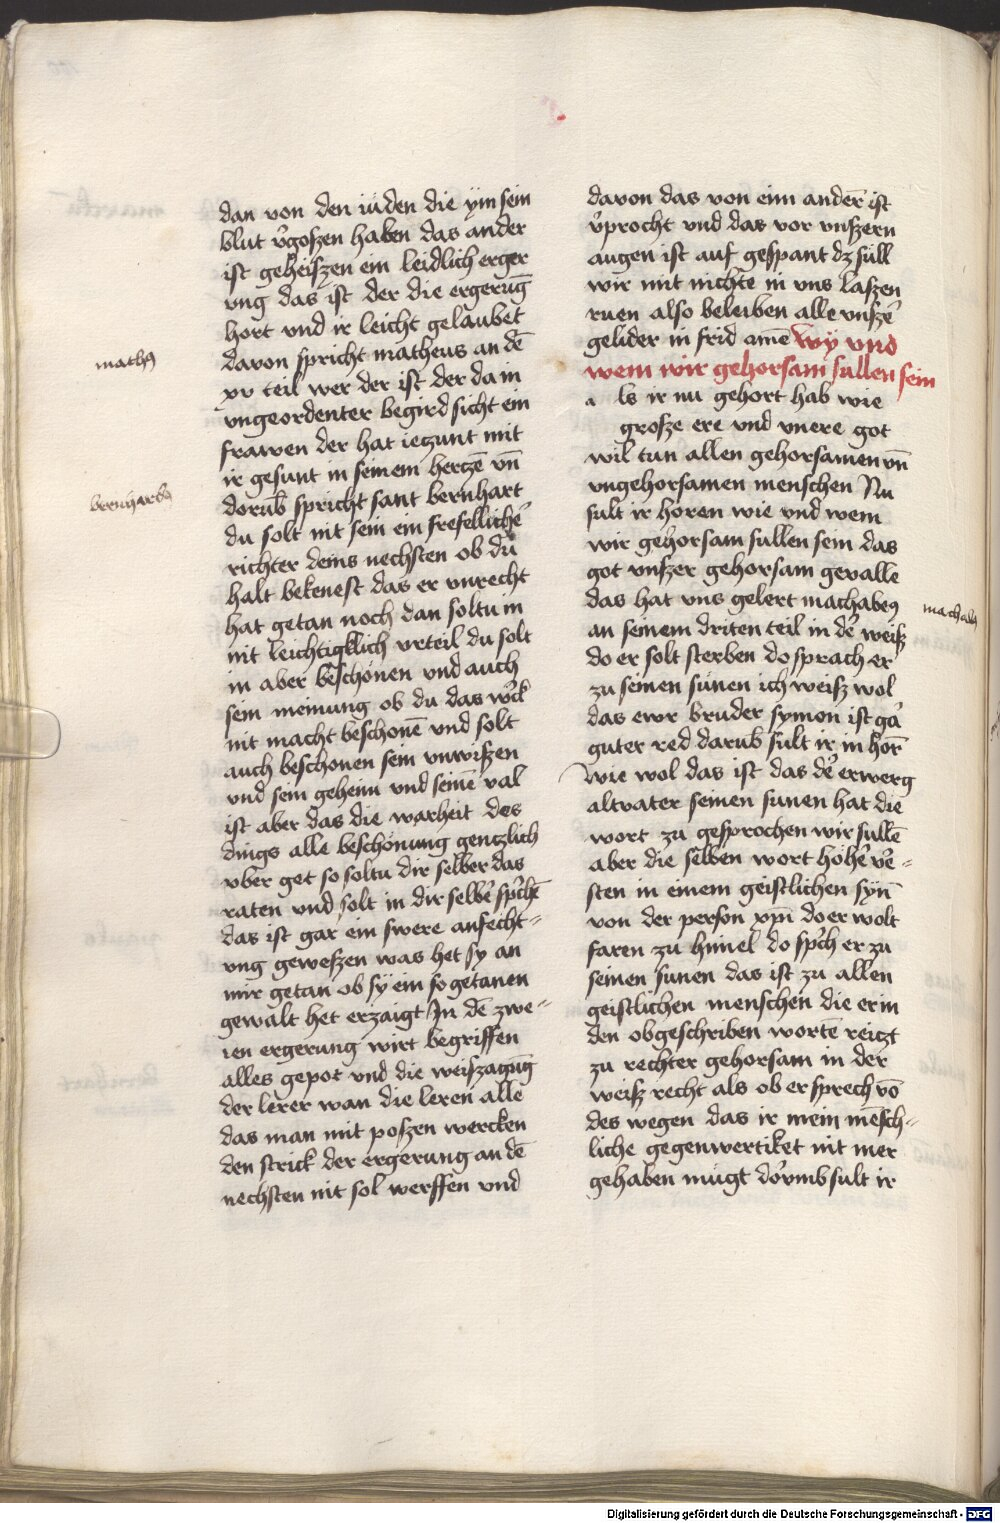 dan von den iüden die ÿm sein
blut v̉goszen haben das ander
ist geheiszen ein leidlich erger
ung das ist der die ergerūg
hort und ir leicht gelaubet
davon spricht matheus an dē
xv teil wer der ist der da in
ungeordenter begird sicht ein
frawen der hat ieczunt mit
ir gesunt in seinem herczē vn̄
dorūb spricht sant bernhart
du solt nit sein ein frefellichē
richter deins nechsten ob dü
halt bekenest das er unrecht
hat getan noch dan soltu in
nit leichtigklich urteil du solt
in aber beschönen und auch
sein meinung ob du das wc̉k
nit macht beschonē und solt
auch beschonen sein unwiszen
und sein geheim und seinē val
ist aber das die warheit des
dings alle beschönung genczlich
vber get so soltu dir selber das
raten und solt in dir selbē sp̉chē
das ist gar ein swere anfecht-
ung geweszen was het sy an
mir getan ob sÿ ein so getanen
gewalt het erzaigt In dē zwe-
ien ergerung wirt begriffen
alles gepot und die weiszagūg
der lerer wan die leren alle
das man mit poszen wercken
den strick der ergerung an dē
nechsten nit sol werffen und
math9
bernhard9
davon das von eim andēr ist
v̉procht und das vor unszern
augen ist auf gespant dz süll
wir mit nichte in uns laszen
ruen also beleiben alle unszē
gelider in frid amē wÿ und
wem wir gehorsam sullen sein
a ls ir nu gehort hab wie
grosze ere und unere got
wil tun allen gehorsamen vn̄
ungehorsamen menschen Nu
sult ir horen wie und wem
wir gehorsam sullen sein das
got unszer gehorsam gevalle
das hat uns gelert machabe9
an seinem driten teil in dē weisz
do er solt sterben do sprach er
zu seinen sünen ich weisz wol
das ewr bruder symon ist gā
guter red darūb sult ir in hōr
wie wol das ist das dē erwerg
altvater seinen sunen hat die
wort zu gesprochen wir sullē
aber die selben wort hohē vē-
sten in einem geistlichen sÿn̄
von der person xp̄i do er wolt
faren zu himel do sp̉ch er zu
seinen sunen das ist zu allen
geistlichen menschen die er in
den obgeschriben wortē reiczt
zu rechter gehorsam in der
weisz recht als ob er sprech vō
des wegen das ir mein mēsch-
liche gegenwertiket nit mer
gehaben mügt dor̉umb sult ir
machab9
Digitalisierung gefördert durch die Deutsche Forschungsgemeinschaft - DFG